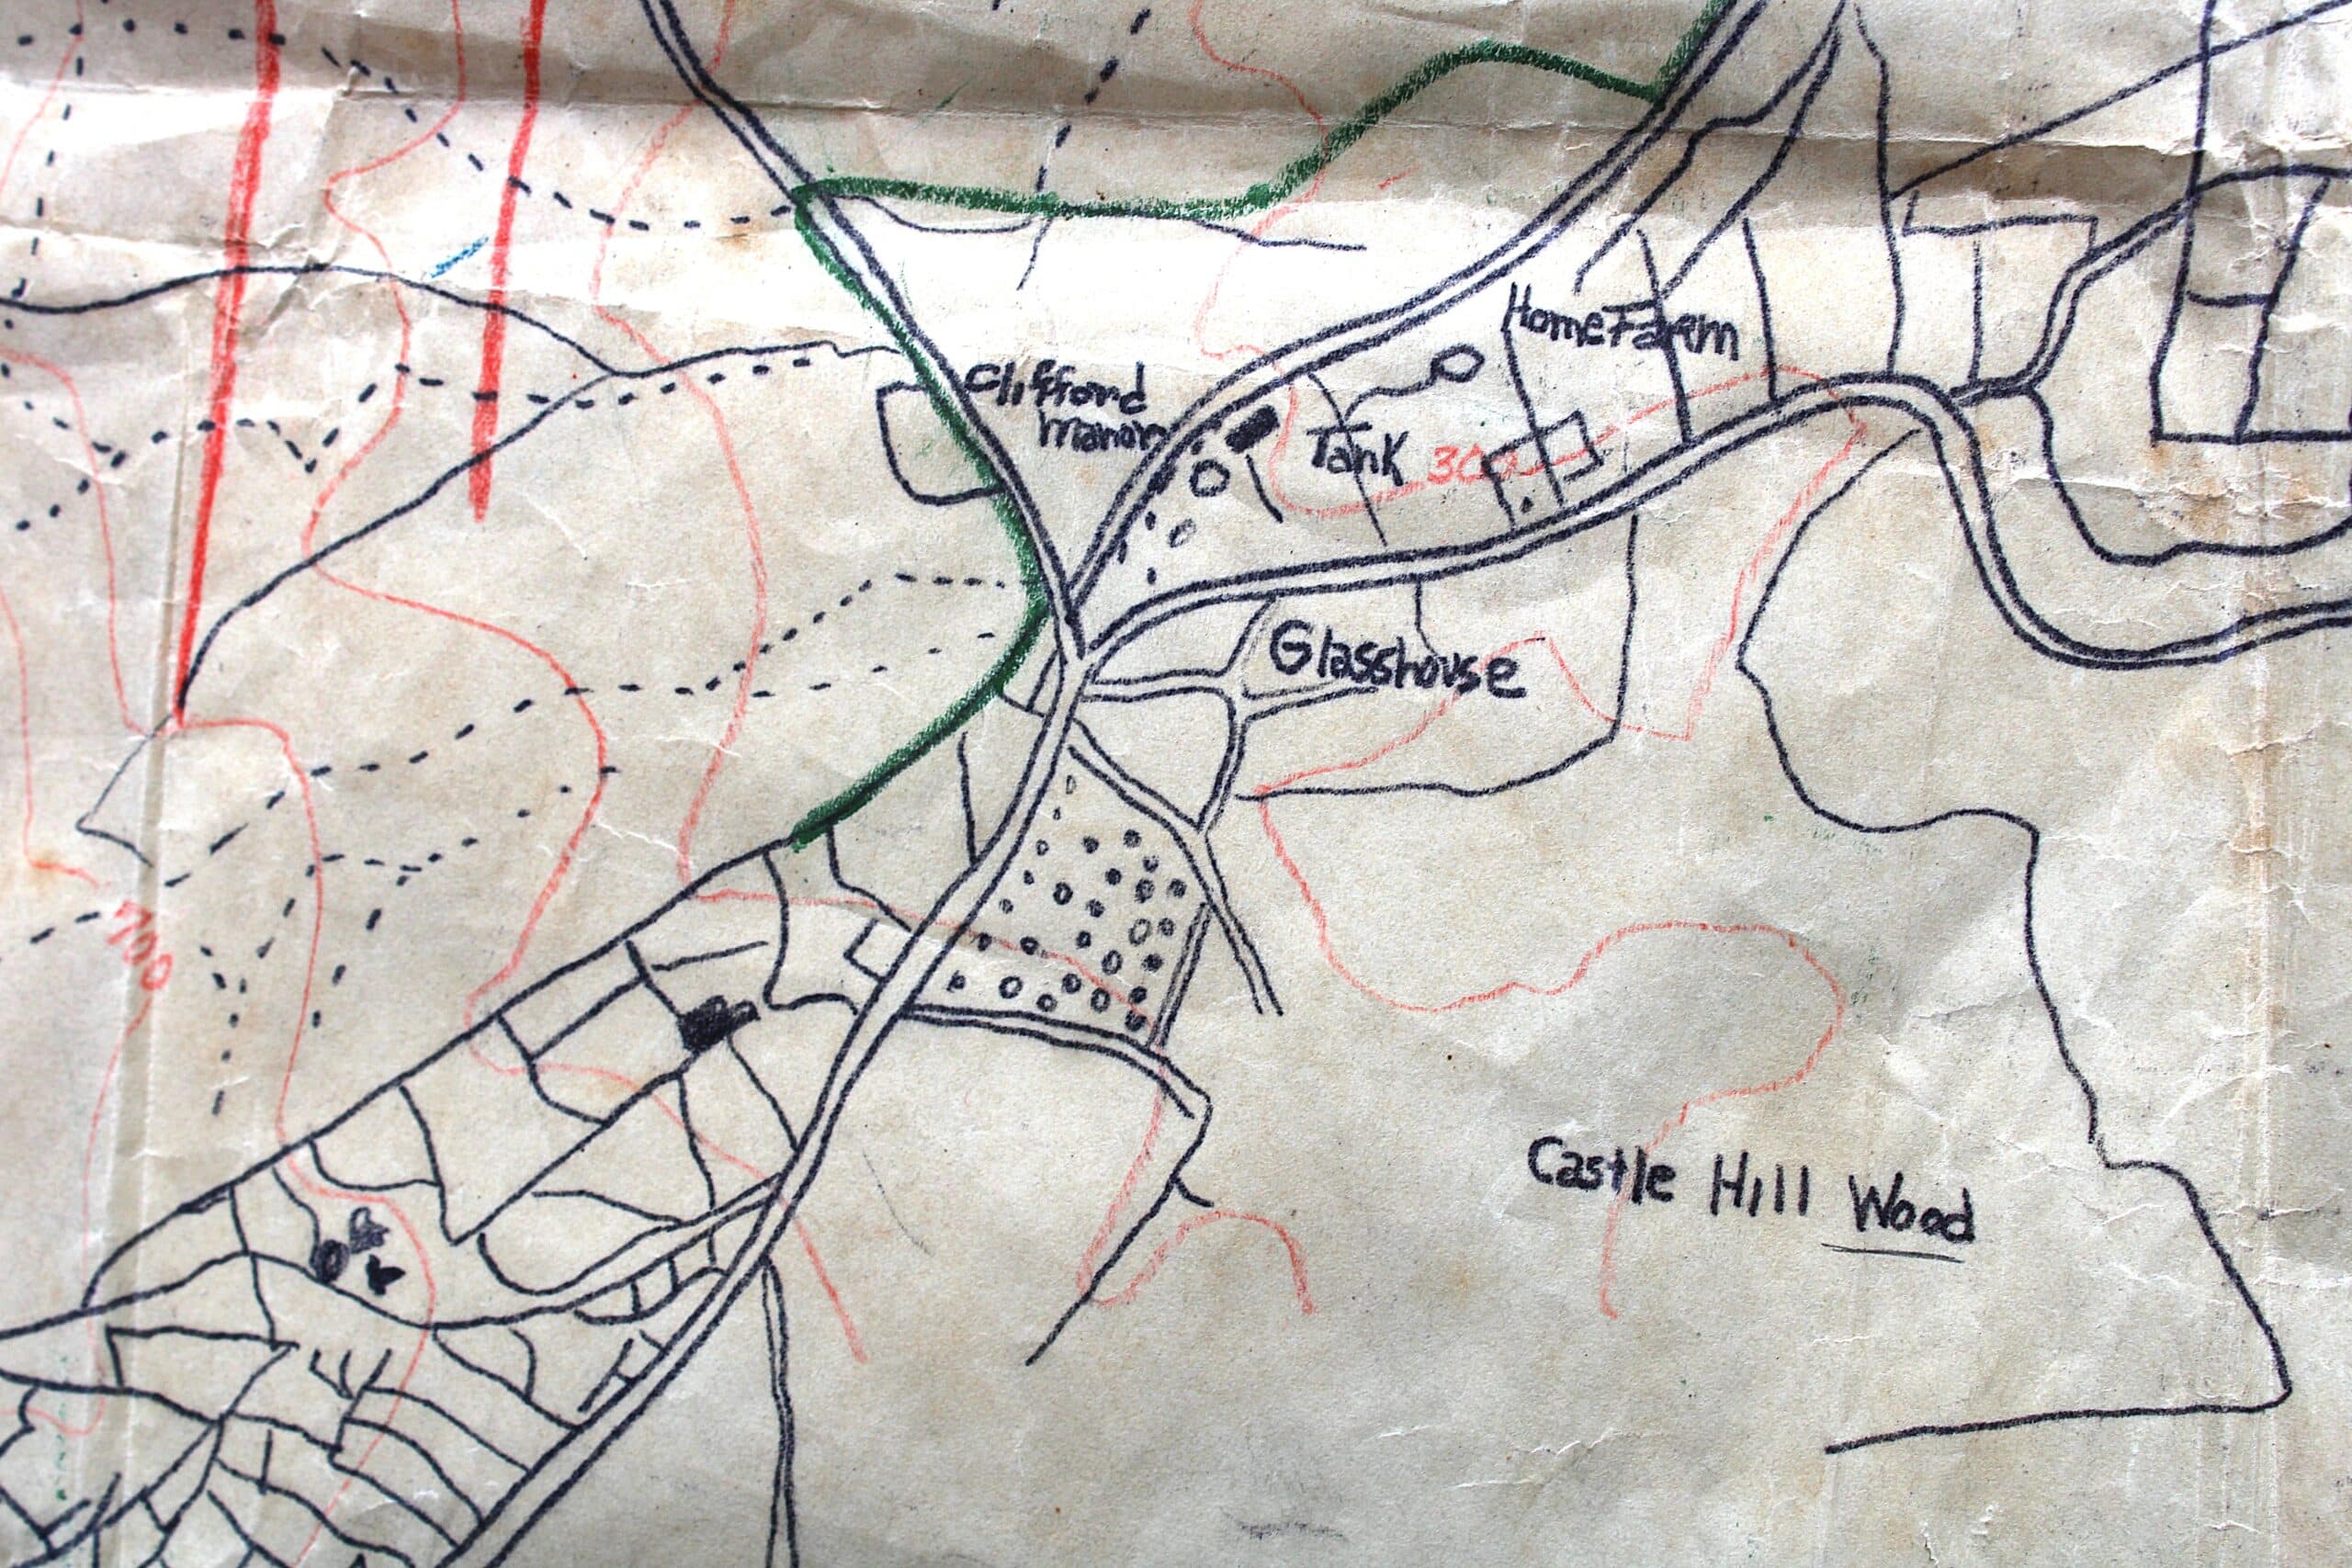 Home Farm
Clifford
Manor
Tank 300
Glasshouse
Castle Hill Wood